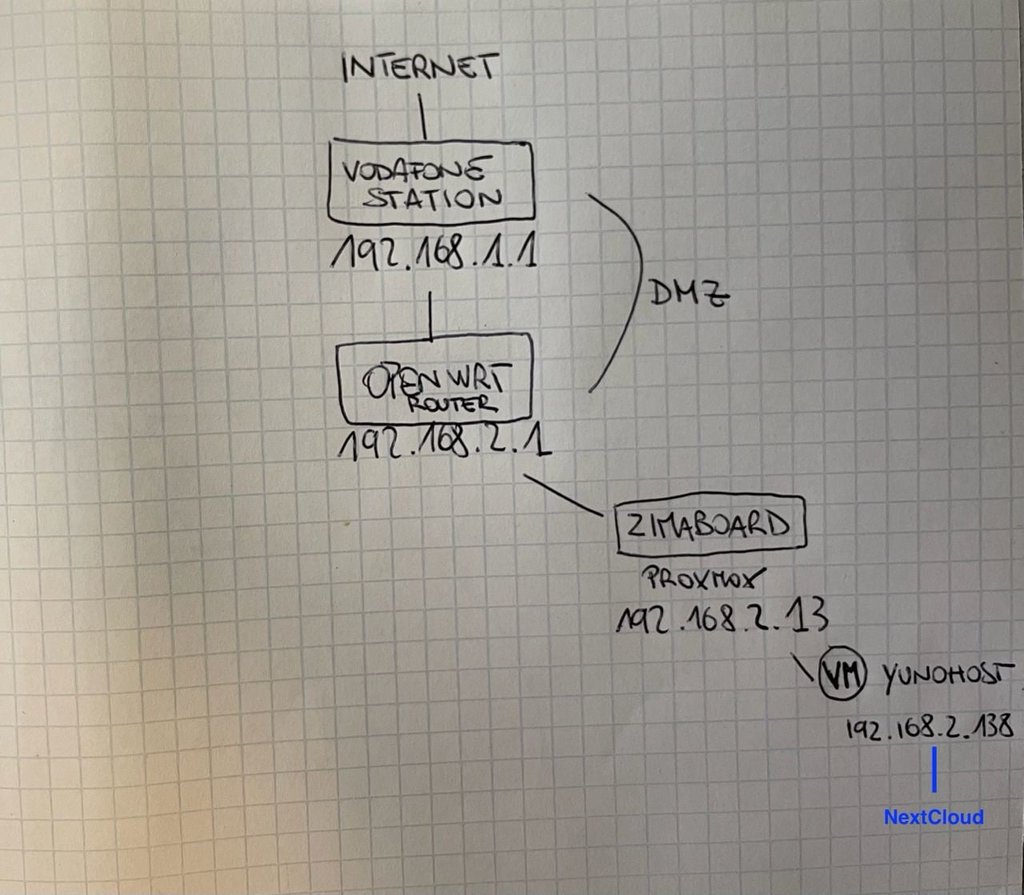 INTERNET
VODAFONE
STATION
192.168.1.1
DMZ
OPENWRT
ROUTER
192.168.2.1
ZIMABOARD
PROXMOX
192.168.2.13
VM YUNOHOST
192.168.2.138
NextCloud